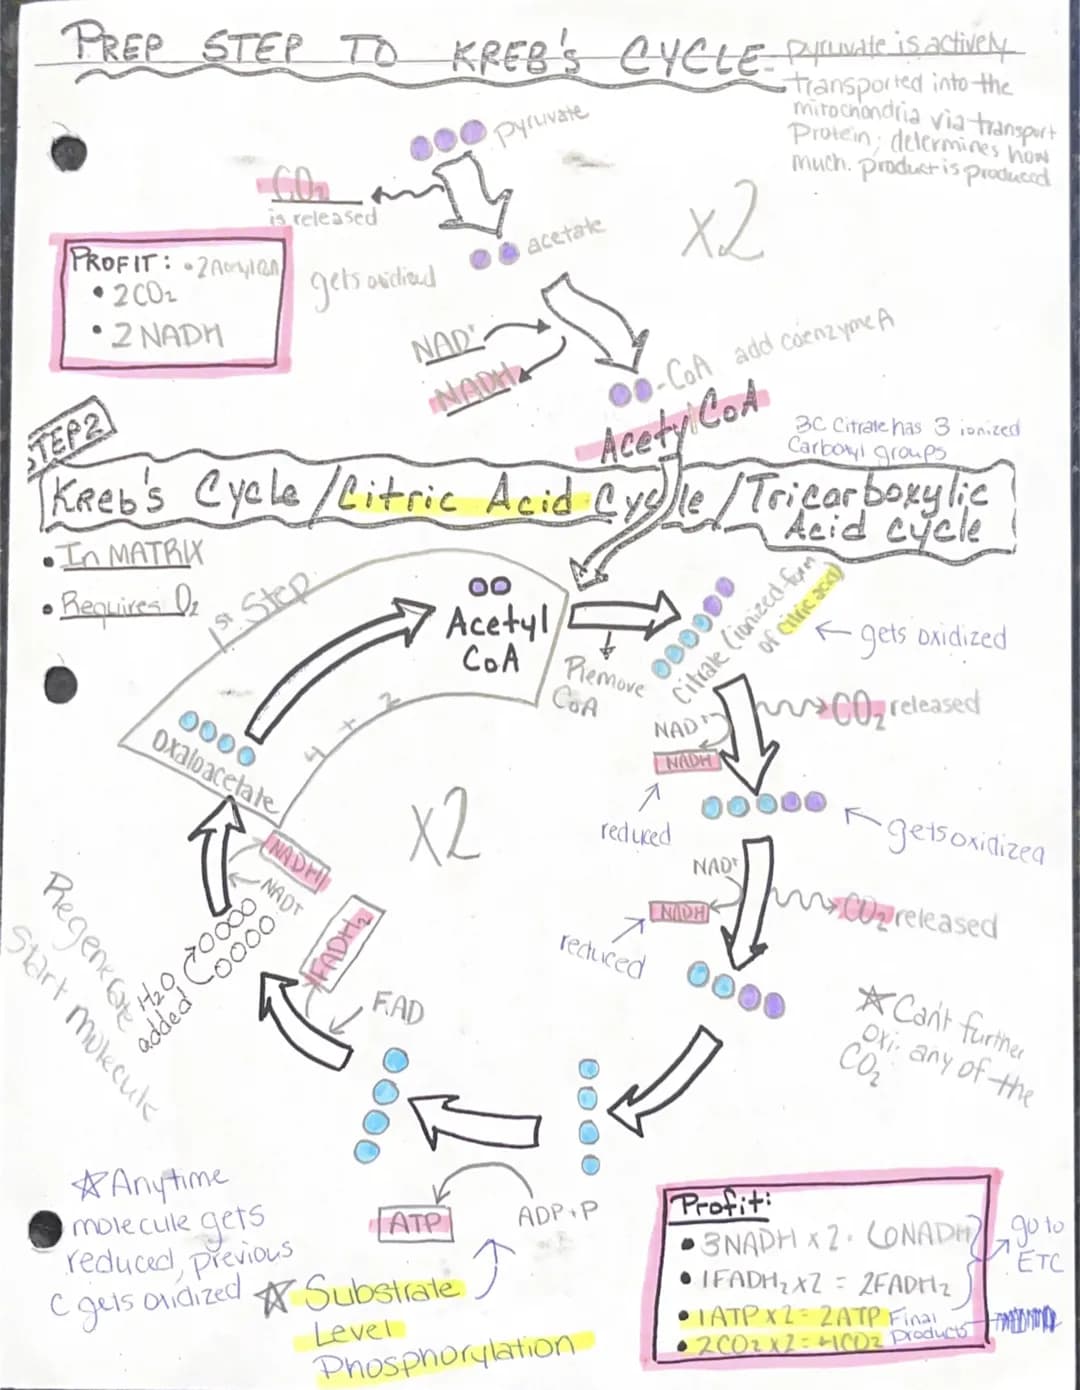 PREP STEP TO KREB'S CYCLE
pyruvate is actively
transported into the
mitochondria via transport
Protein; determines how
much. product is produced
pyruvate
CO₂
is released
acetate
X2
PROFIT:
• 2CO₂
• 2 NADH
gets oxidized
NAD⁺
NADH
-CoA add coenzyme A
Acetyl CoA
STEP 2
3C Citrate has 3 ionized
Carboxyl groups
Kreb's Cycle / Citric Acid Cycle / Tricarboxylic
Acid Cycle
• In MATRIX
• Requires O₂
1st Step
Acetyl
CoA
Remove
CoA
Citrate (ionized form
of citric acid)
← gets oxidized
oxaloacetate
4 + 2
NAD⁺
NADH
CO₂ released
reduced
gets oxidized
X2
NAD⁺
NADH
CO₂ released
reduced
NADH
NAD⁺
FADH₂
FAD
H₂O
added
Regenerate
Start Molecule
☆ Can't further
oxi. any of the
CO₂
☆ Anytime
molecule gets
reduced, previous
C gets oxidized
ATP
ADP+P
☆ Substrate
Level
Phosphorylation
Profit:
• 3NADH x 2 · 6NADH
• 1FADH₂ x2 = 2FADH₂
• 1ATP x2 = 2ATP Final
• 2CO₂ x2 = 4CO₂ Products
go to
ETC